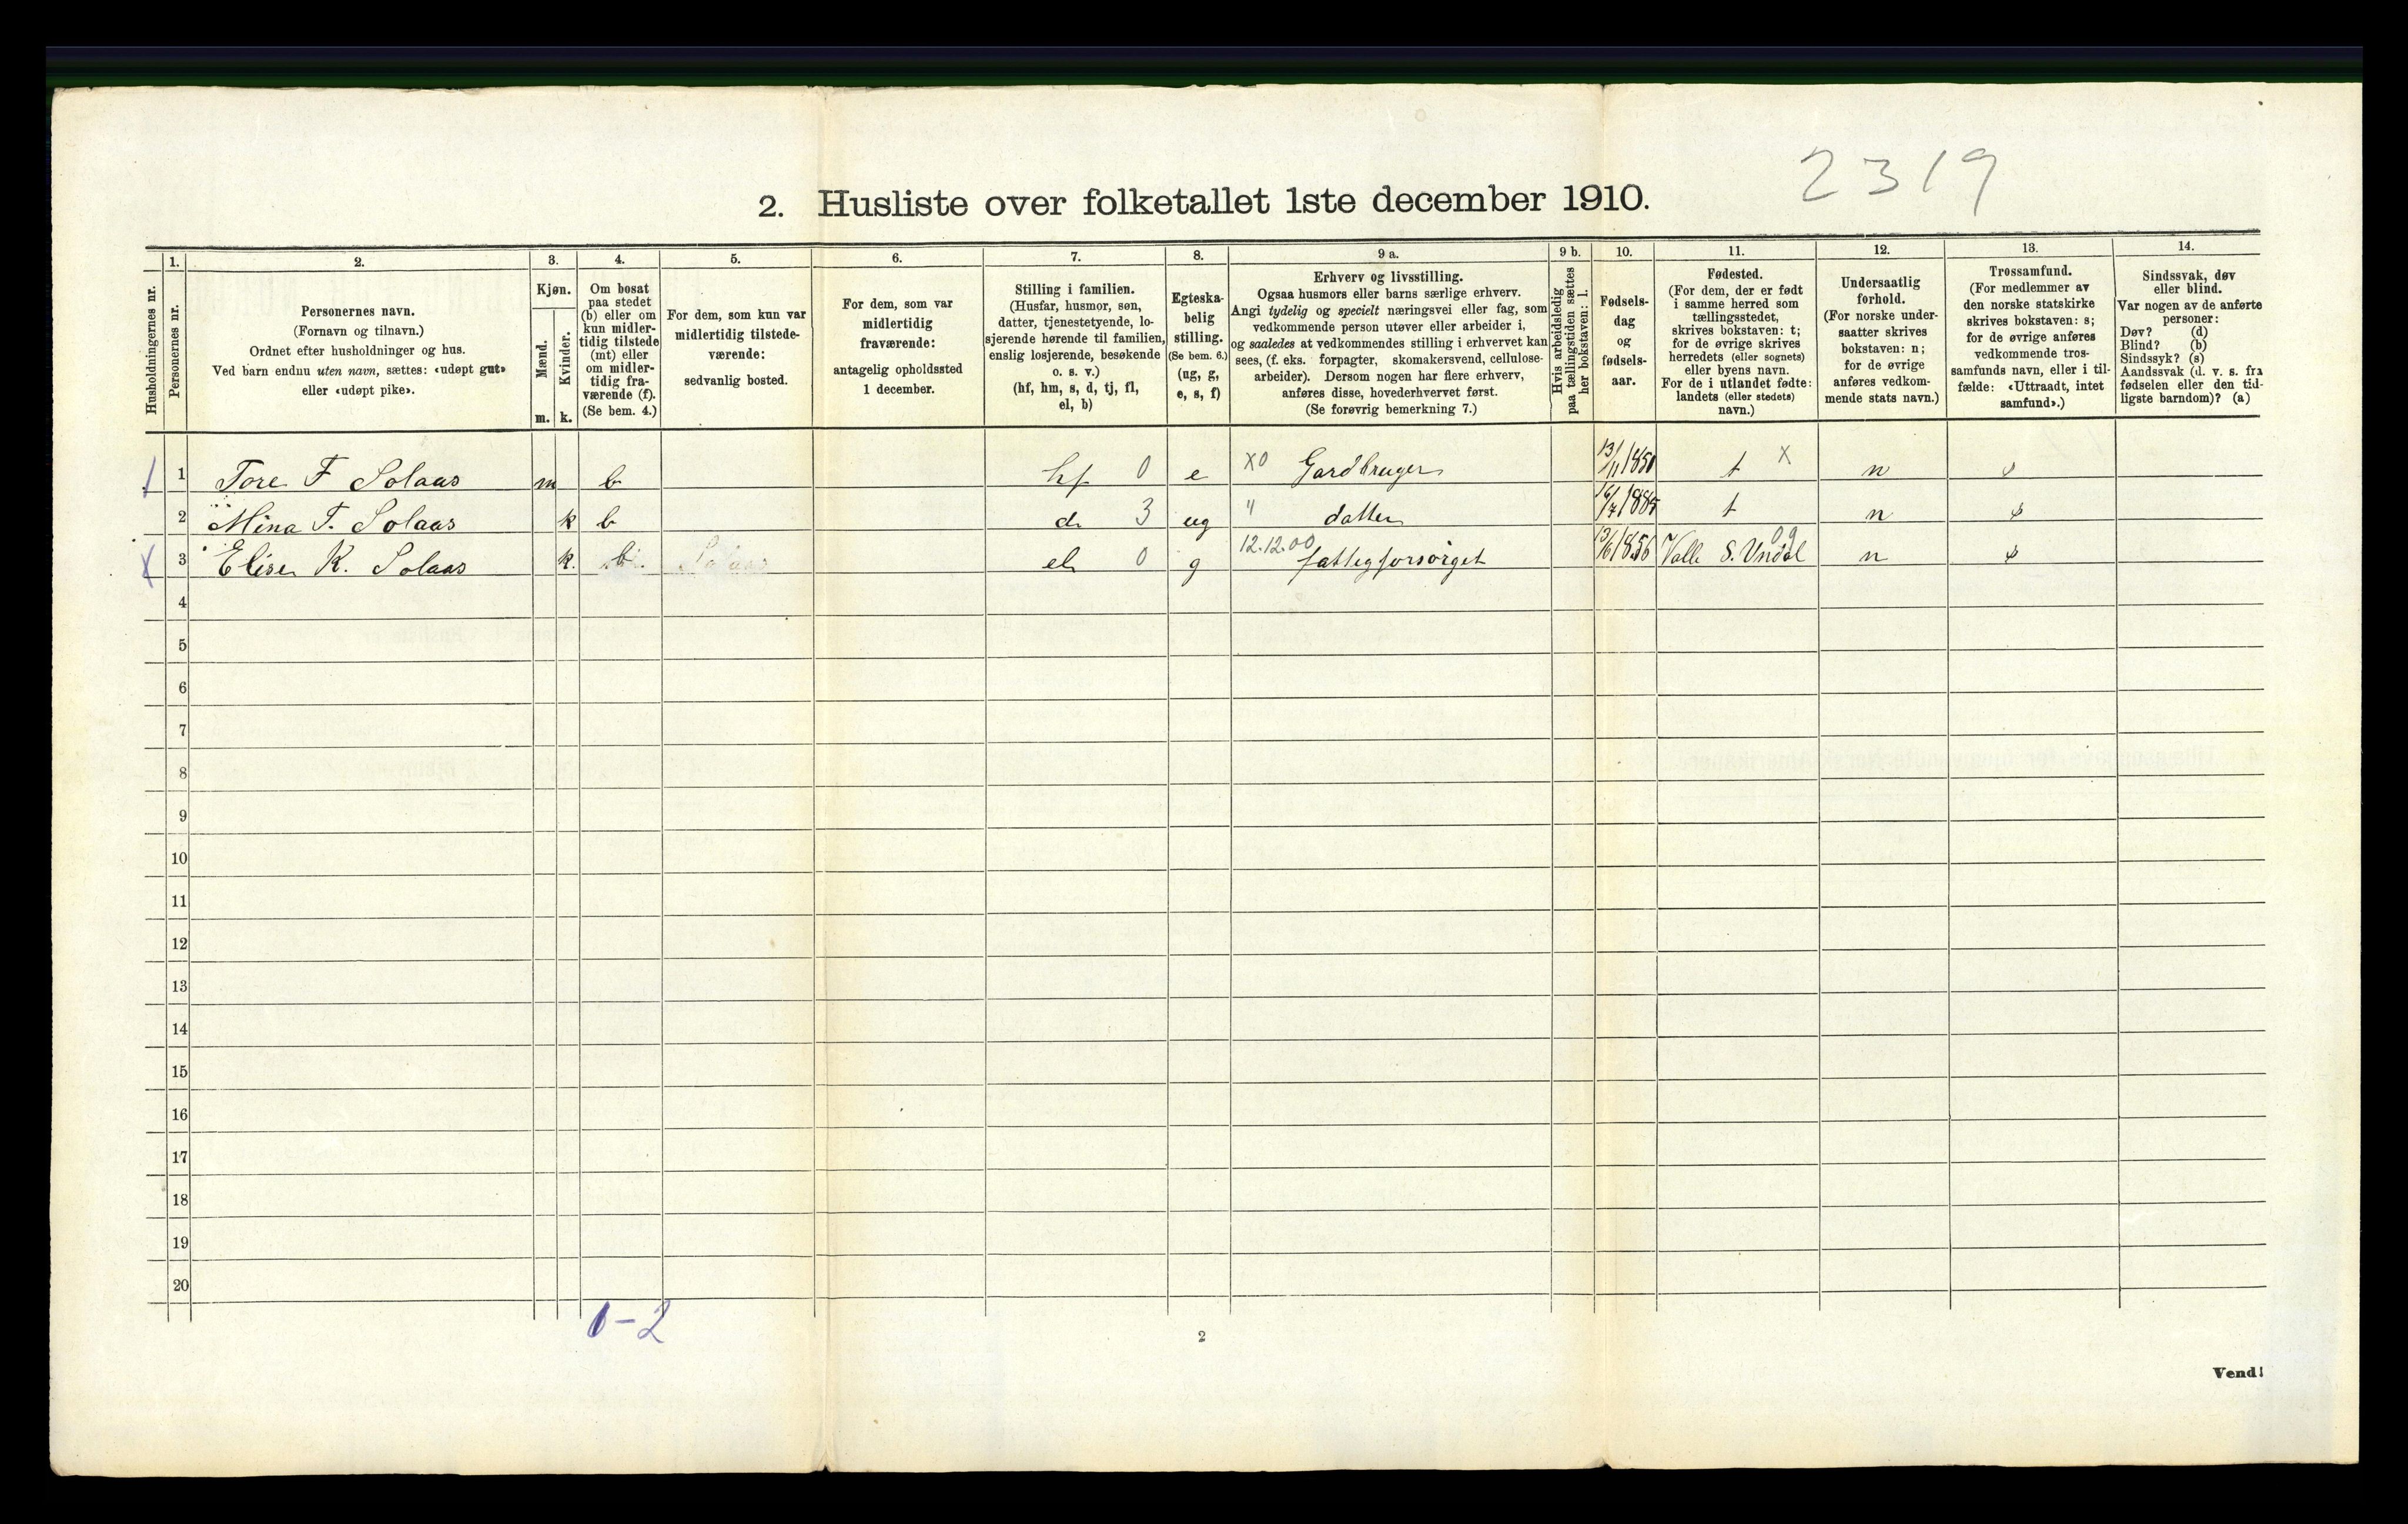 2319
2. Husliste over folketallet 1ste december 1910.
Husholdningernes nr.
1.
Personernes nr.
2.
Personernes navn.
(Fornavn og tilnavn.)
Ordnet efter husholdninger og hus.
Ved barn endnu uten navn, sættes: «udøpt gut»
eller «udøpt pike».
3.
Kjøn.
Mænd.
Kvinder.
m. k.
4.
Om bosat
paa stedet
(b) eller om
kun midler-
tidig tilstede
(mt) eller
om midler-
tidig fra-
værende (f).
(Se bem. 4.)
5.
For dem, som kun var
midlertidig tilstede-
værende:
sedvanlig bosted.
6.
For dem, som var
midlertidig
fraværende:
antagelig opholdssted
1 december.
7.
Stilling i familien.
(Husfar, husmor, søn,
datter, tjenestetyende, lo-
sjerende hørende til familien,
enslig losjerende, besøkende
o. s. v.)
(hf, hm, s, d, tj, fl,
el, b)
8.
Egteska-
belig
stilling.
(Se bem. 6.)
(ug, g,
e, s, f)
9 a.
Erhverv og livsstilling.
Ogsaa husmors eller barns særlige erhverv.
Angi tydelig og specielt næringsvei eller fag, som
vedkommende person utøver eller arbeider i,
og saaledes at vedkommendes stilling i erhvervet kan
sees, (f. eks. forpagter, skomakersvend, cellulose-
arbeider). Dersom nogen har flere erhverv,
anføres disse, hovederhvervet først.
(Se forøvrig bemerkning 7.)
9 b.
Hvis arbeidsledig
paa tællingstiden sættes
her bokstaven: l.
10.
Fødsels-
dag
og
fødsels-
aar.
11.
Fødested.
(For dem, der er født
i samme herred som
tællingsstedet,
skrives bokstaven: t;
for de øvrige skrives
herredets (eller sognets)
eller byens navn.
For de i utlandet fødte:
landets (eller stedets)
navn.)
12.
Undersaatlig
forhold.
(For norske under-
saatter skrives
bokstaven: n;
for de øvrige
anføres vedkom-
mende stats navn.)
13.
Trossamfund.
(For medlemmer av
den norske statskirke
skrives bokstaven: s;
for de øvrige anføres
vedkommende tros-
samfunds navn, eller i til-
fælde: «Uttraadt, intet
samfund».)
14.
Sindssvak, døv
eller blind.
Var nogen av de anførte
personer:
Døv? (d)
Blind? (b)
Sindssyk? (s)
Aandssvak (d. v. s. fra
fødselen eller den tid-
ligste barndom)? (a)
1 Tore F Solaas m b hf 0 e X0 Gardbruger 13/11 1850 t X n s
2 Mina T. Solaas k b d 3 ug " datter 16/7 1885 t n s
X 3 Elise K. Solaas k. b. Solaas el 0 g 12.12.00 fattigforsørget 13/6 1856 Valle S. Undal 09 n s
4
5
6
7
8
9
10
11
12
13
14
15
16
17
18
19
20
1-2
2
Vend!